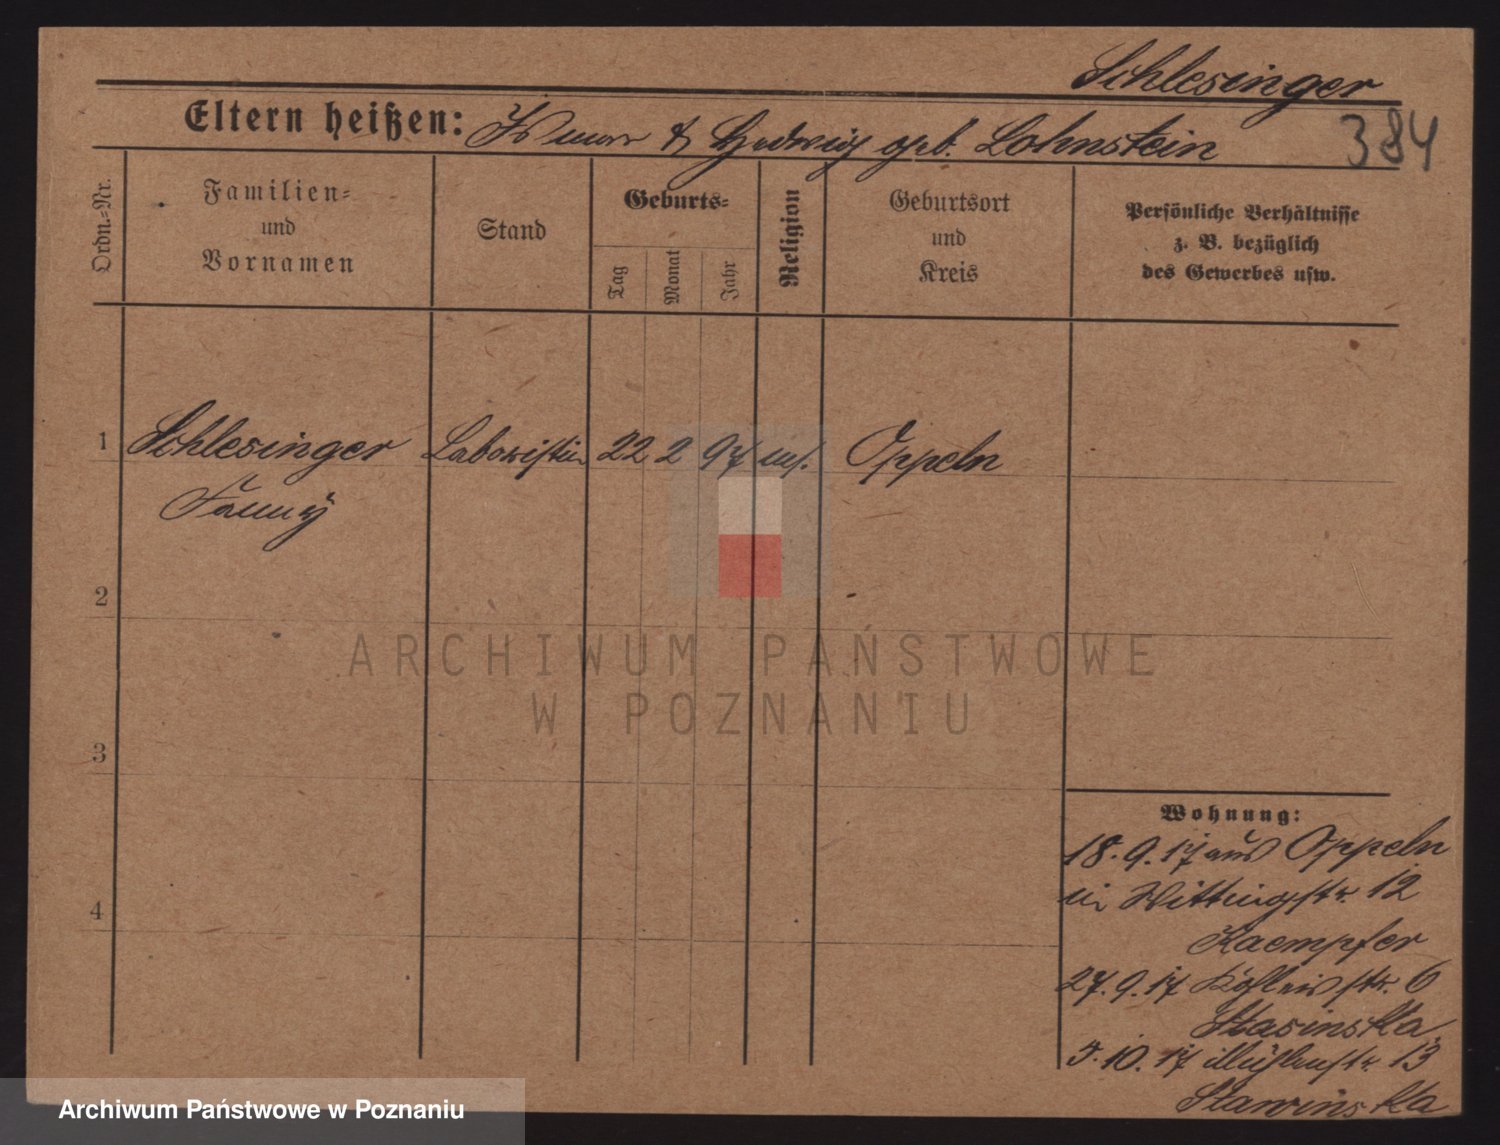 Schlesinger
Eltern heißen: & Hedwig geb. Lohnstein
384
Ordn.-Nr.
Familien-
und
Vornamen
Stand
Geburts-
Tag
Monat
Jahr
Religion
Geburtsort
und
Kreis
Persönliche Verhältnisse
z. B. bezüglich
des Gewerbes usw.
1
Schlesinger
Fanny
Laboristin
22
2
97
Oppeln
2
3
4
Wohnung:
18.9.17 aus Oppeln
in 12
Kaempfer
27.9.17 6
Stasinska
5.10.17 Mühlenstr. 13
Stawinska
ARCHIWUM PAŃSTWOWE
W POZNANIU
Archiwum Państwowe w Poznaniu